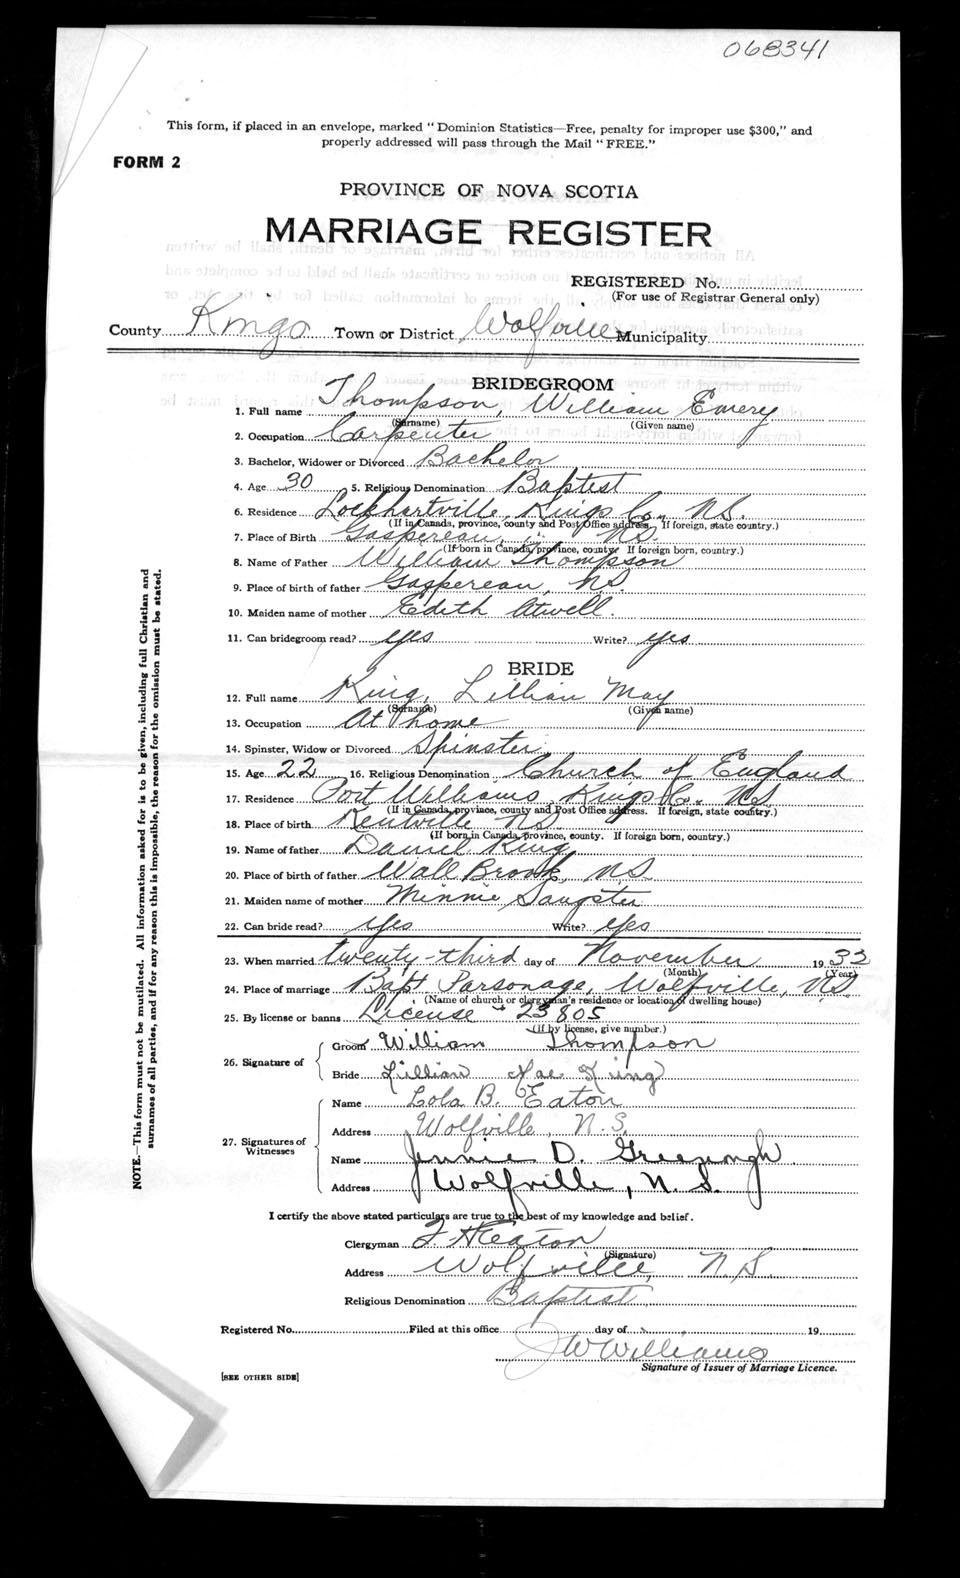 068341
This form, if placed in an envelope, marked "Dominion Statistics—Free, penalty for improper use $300," and
properly addressed will pass through the Mail "FREE."
FORM 2
PROVINCE OF NOVA SCOTIA
MARRIAGE REGISTER
REGISTERED No.
(For use of Registrar General only)
County Kings Town or District Wolfville Municipality
BRIDEGROOM
1. Full name Thompson, William Emery
(Surname) (Given name)
2. Occupation Carpenter
3. Bachelor, Widower or Divorced Bachelor
4. Age 30 5. Religious Denomination Baptist
6. Residence Lockhartville, Kings Co., N.S.
(If in Canada, province, county and Post Office address. If foreign, state country.)
7. Place of Birth Gaspereau, " N.S.
(If born in Canada, province, county. If foreign born, country.)
8. Name of Father William Thompson
9. Place of birth of father Gaspereau, N.S.
10. Maiden name of mother Edith Atwell
11. Can bridegroom read? yes Write? yes
BRIDE
12. Full name King, Lillian May
(Surname) (Given name)
13. Occupation At home
14. Spinster, Widow or Divorced Spinster
15. Age 22 16. Religious Denomination Church of England
17. Residence Port Williams, Kings Co. N.S.
(If in Canada, province, county and Post Office address. If foreign, state country.)
18. Place of birth Kentville N.S.
(If born in Canada, province, county. If foreign born, country.)
19. Name of father Daniel King
20. Place of birth of father Wall Brook, N.S.
21. Maiden name of mother Minnie Sangster
22. Can bride read? Yes Write? Yes
23. When married twenty-third day of November 1933
(Month) (Year)
24. Place of marriage Bapt Parsonage, Wolfville, N.S.
(Name of church or clergyman's residence or location of dwelling house)
25. By license or banns License - 23805
(If by license, give number.)
26. Signature of
Groom William Thompson
Bride Lillian Mae King
27. Signatures of Witnesses
Name Lola B. Eaton
Address Wolfville, N.S.
Name Jennie D. Greenough
Address Wolfville, N.S.
I certify the above stated particulars are true to the best of my knowledge and belief.
Clergyman F. H. Eaton
(Signature)
Address Wolfville, N.S.
Religious Denomination Baptist
Registered No. Filed at this office day of 19
J W Williams
Signature of Issuer of Marriage Licence.
[SEE OTHER SIDE]
NOTE.—This form must not be mutilated. All information asked for is to be given, including full Christian and
surnames of all parties, and if for any reason this is impossible, the reason for the omission must be stated.